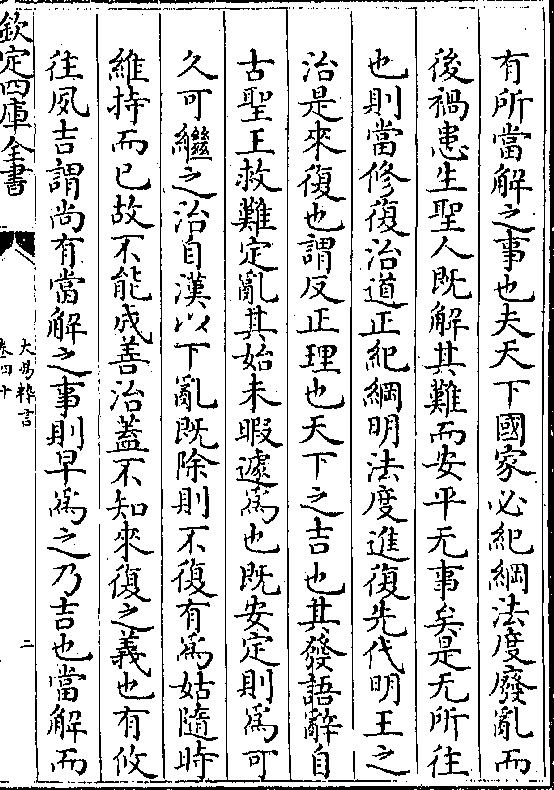 有所當解之事也夫天下國家必紀綱法度廢亂而
後禍患生聖人既解其難而安平无事矣是无所往
也則當修復治道正紀綱明法度進復先代明王之
治是來復也謂反正理也天下之吉也其發語辭自
古聖王救難定亂其始未暇遽為也既安定則為可
久可繼之治自漢以下亂既除則不復有為姑隨時
維持而已故不能成善治蓋不知來復之義也有攸
往夙吉謂尚有當解之事則早為之乃吉也當解而
欽定四庫全書
大易粹言
卷四十
二